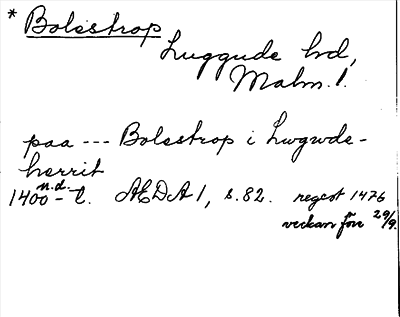 * Bolestrop
Luggude hd,
Malm. l.
paa --- Bolsstrop i Lwgwde-
herrit
1400-n.d. t. AEDA 1, s. 82. regest 1476
veckan före 29/9.